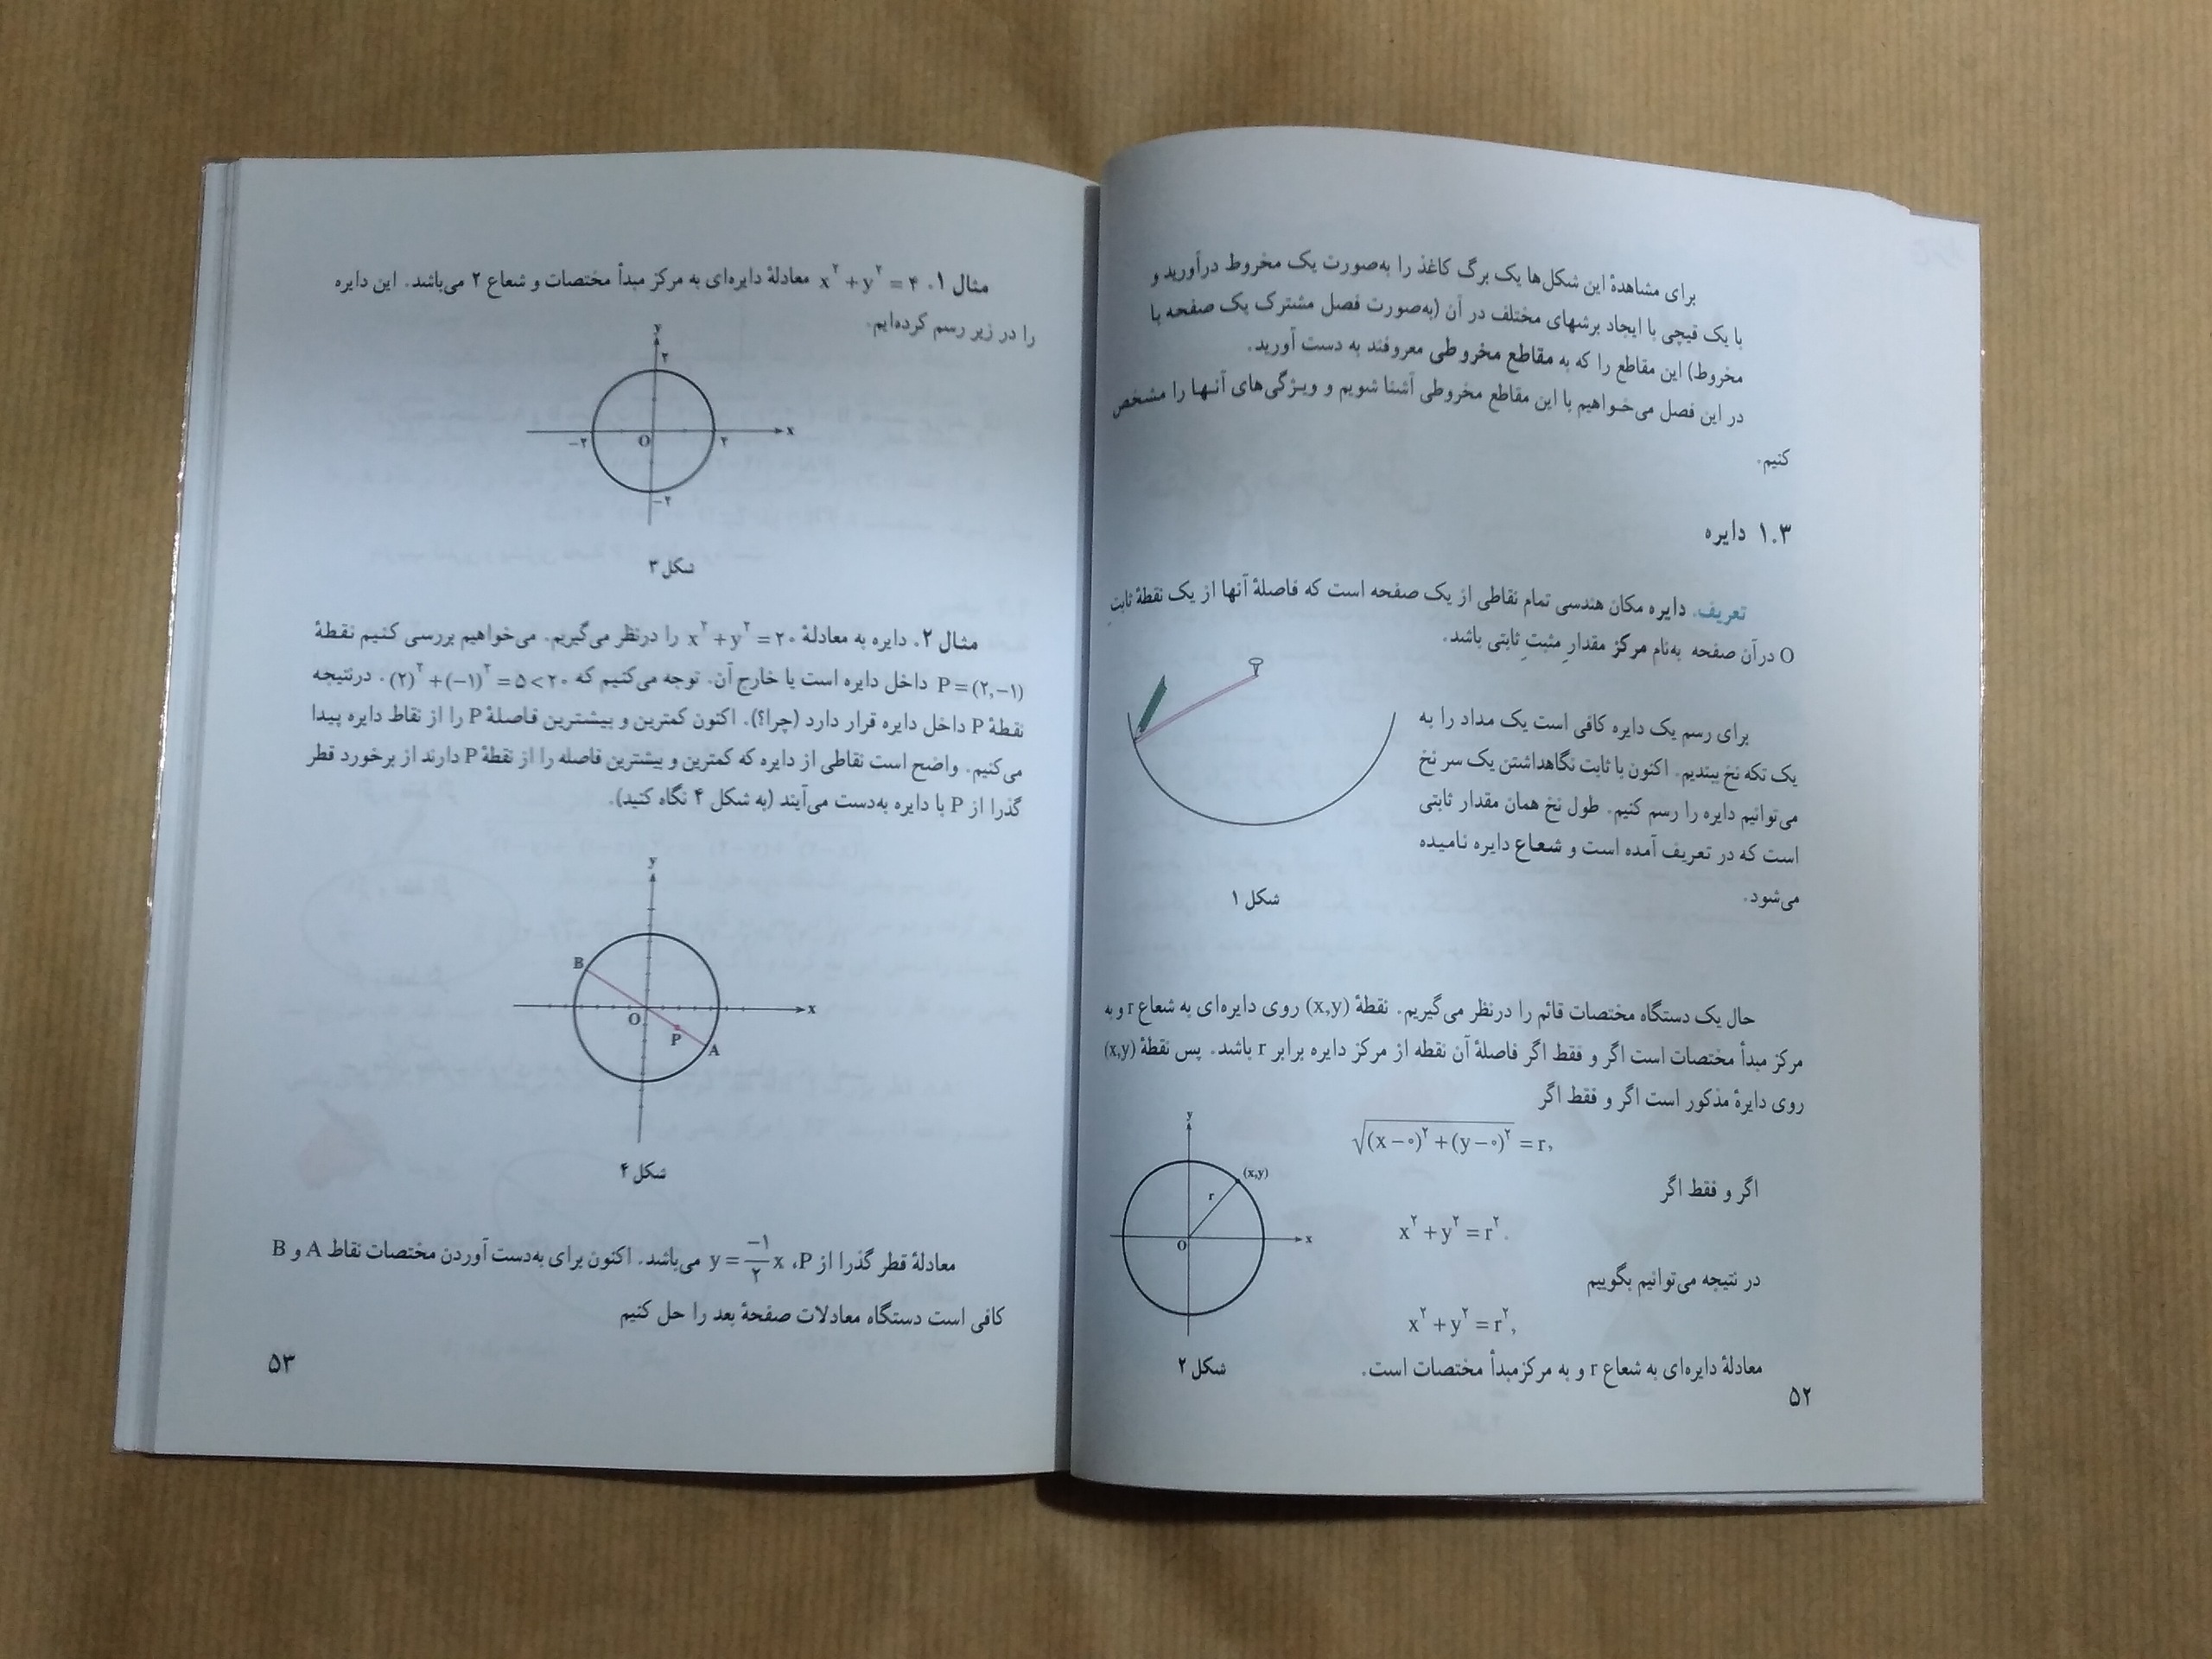 برای مشاهدهٔ این شکل‌ها یک برگ کاغذ را به‌صورت یک مخروط درآورید و
با یک قیچی با ایجاد برشهای مختلف در آن (به‌صورت فصل مشترک یک صفحه با
مخروط) این مقاطع را که به مقاطع مخروطی معروفند به دست آورید.
در این فصل می‌خواهیم با این مقاطع مخروطی آشنا شویم و ویژگی‌های آنها را مشخص
کنیم.
۱.۳ دایره
تعریف. دایره مکان هندسی تمام نقاطی از یک صفحه است که فاصلهٔ آنها از یک نقطهٔ ثابتِ
O درآن صفحه به‌نام مرکز مقدارِ مثبتِ ثابتی باشد.
برای رسم یک دایره کافی است یک مداد را به
یک تکه نخ ببندیم. اکنون با ثابت نگاهداشتن یک سر نخ
می‌توانیم دایره را رسم کنیم. طول نخ همان مقدار ثابتی
است که در تعریف آمده است و شعاع دایره نامیده
می‌شود.
شکل ۱
حال یک دستگاه مختصات قائم را درنظر می‌گیریم. نقطهٔ (x,y) روی دایره‌ای به شعاع r و به
مرکز مبدأ مختصات است اگر و فقط اگر فاصلهٔ آن نقطه از مرکز دایره برابر r باشد. پس نقطهٔ (x,y)
روی دایرهٔ مذکور است اگر و فقط اگر
√(x−۰)^۲ + (y−۰)^۲ = r,
اگر و فقط اگر
x^۲ + y^۲ = r^۲.
در نتیجه می‌توانیم بگوییم
x^۲ + y^۲ = r^۲,
معادلهٔ دایره‌ای به شعاع r و به مرکزمبدأ مختصات است.
y
(x,y)
r
O
x
شکل ۲
۵۲
مثال ۱. x^۲ + y^۲ = ۴ معادلهٔ دایره‌ای به مرکز مبدأ مختصات و شعاع ۲ می‌باشد. این دایره
را در زیر رسم کرده‌ایم.
y
۲
−۲
O
۲
x
−۲
شکل ۳
مثال ۲. دایره به معادلهٔ x^۲ + y^۲ = ۲۰ را درنظر می‌گیریم. می‌خواهیم بررسی کنیم نقطهٔ
P=(۲,−۱) داخل دایره است یا خارج آن. توجه می‌کنیم که (۲)^۲ + (−۱)^۲ = ۵ < ۲۰. درنتیجه
نقطهٔ P داخل دایره قرار دارد (چرا؟). اکنون کمترین و بیشترین فاصلهٔ P را از نقاط دایره پیدا
می‌کنیم. واضح است نقاطی از دایره که کمترین و بیشترین فاصله را از نقطهٔ P دارند از برخورد قطر
گذرا از P با دایره به‌دست می‌آیند (به شکل ۴ نگاه کنید).
y
B
O
x
P
A
شکل ۴
معادلهٔ قطر گذرا از P، y = −۱/۲ x می‌باشد. اکنون برای به‌دست آوردن مختصات نقاط A و B
کافی است دستگاه معادلات صفحهٔ بعد را حل کنیم
۵۳